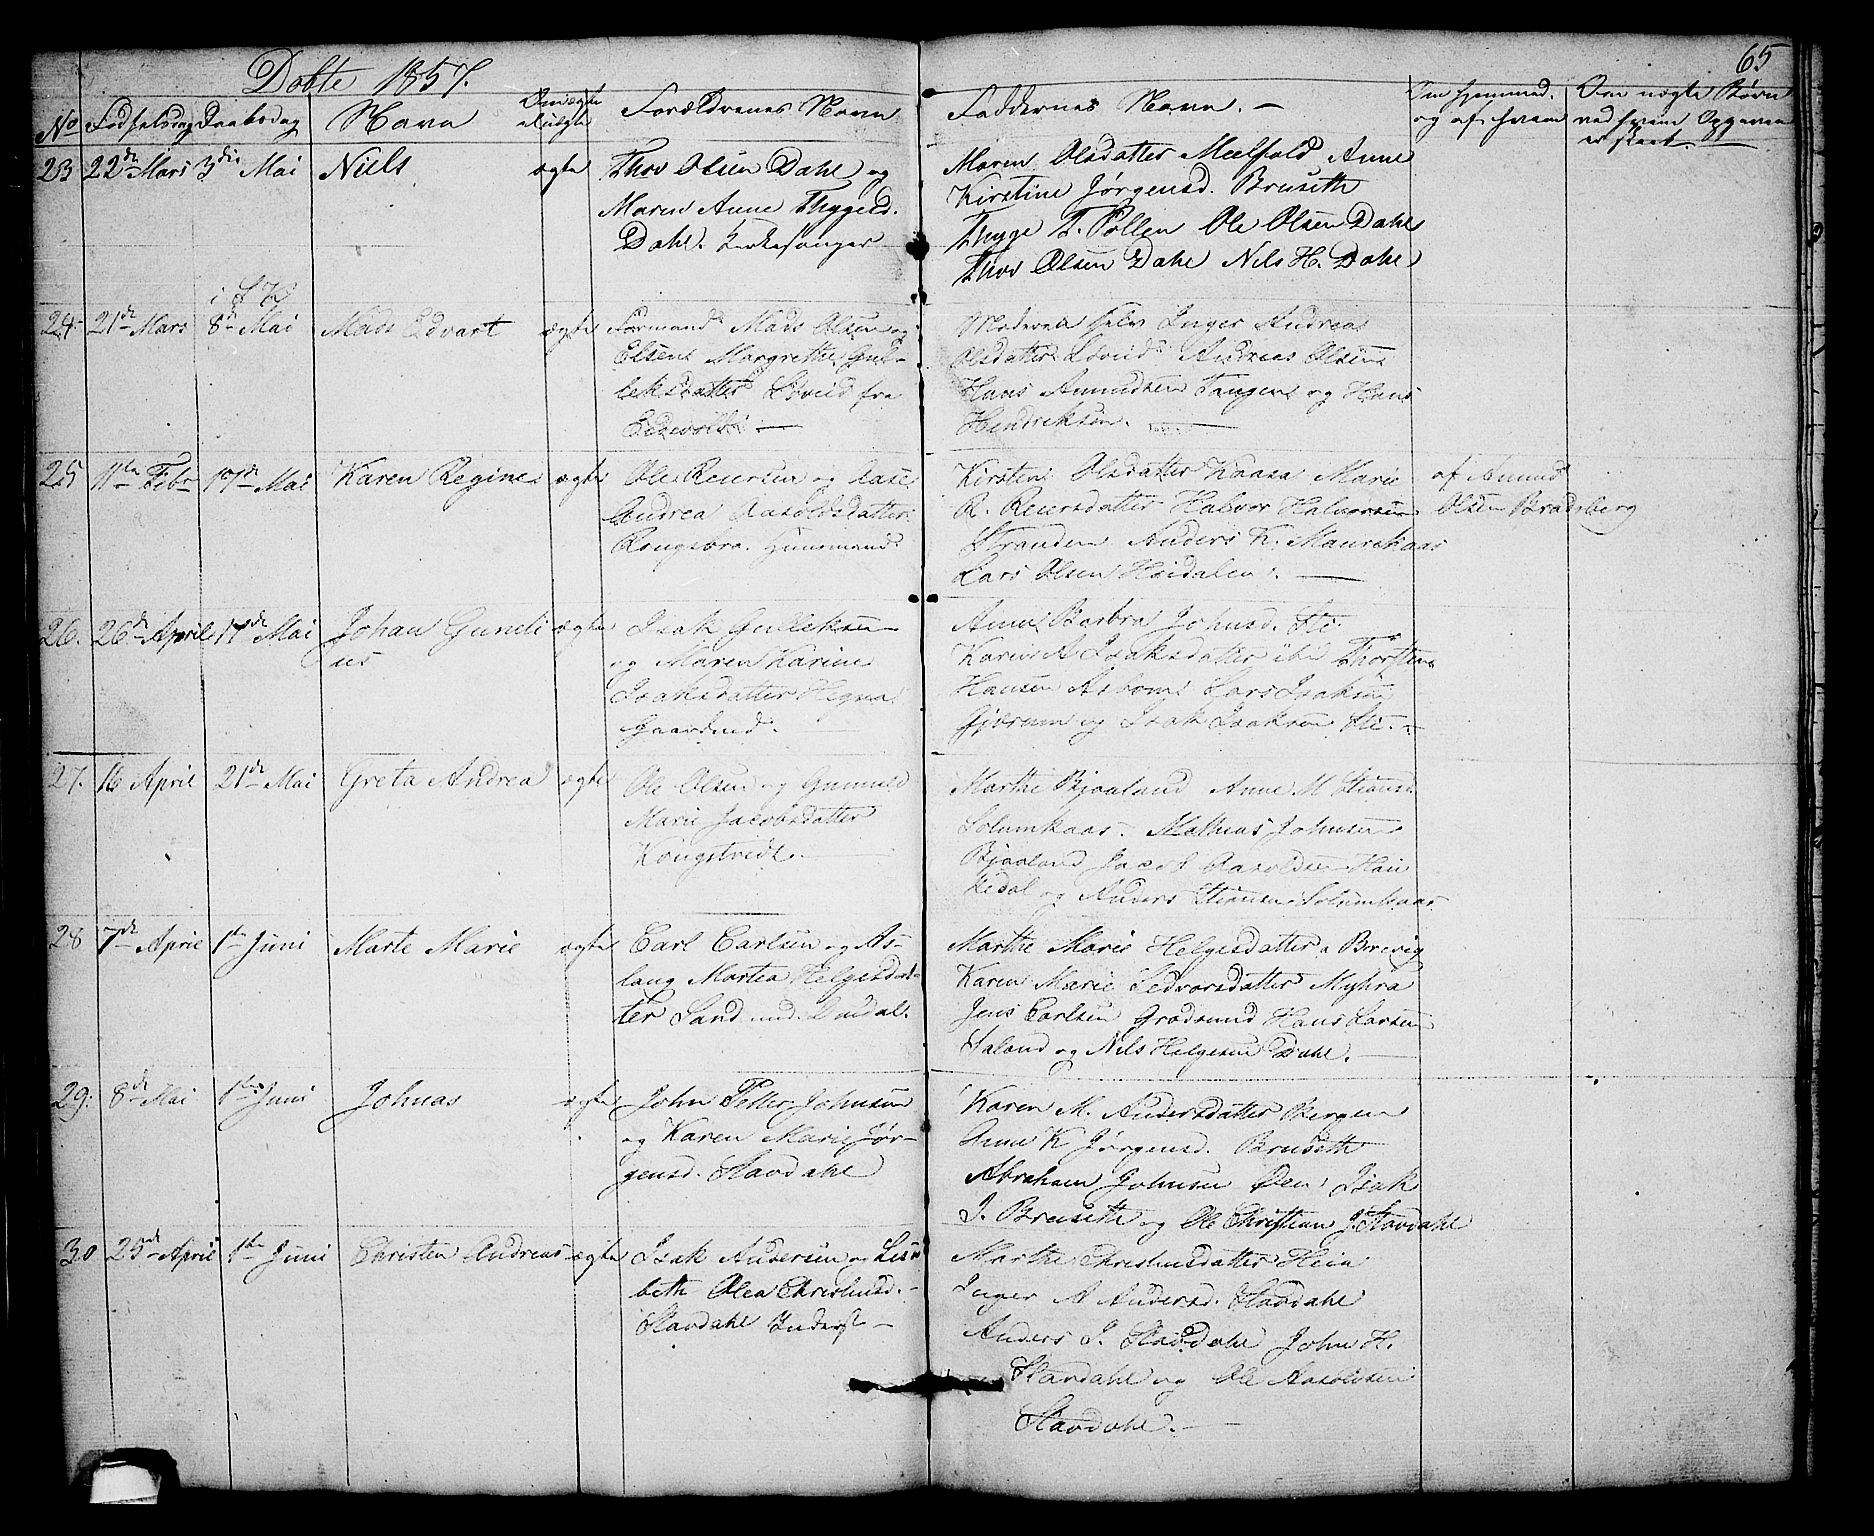 65
Døbte 1857.
No Fødselsdag Daabsdag Navn Om ægte el. uægte Forældrenes Navn Faddernes Navn. – Om hjemmed. og af hvem Om uægte Børn ved hvem Opgaven er skeet
23 22de Mars 3die Mai Niels ægte Thov Olsen Dahl og
Maren Anne Thygesd.
Dahl. Kirkesanger
Maren Olsdatter Melfald Anne
Kirstine Jørgensd. Bruseth
Thyge T. Pollen Ole Olsen Dahl
Thov Olsen Dahl Nils H. Dahl
24. 21de Mars 8de Mai Mads Edvart ægte Formand Mads Olsen og
Elsene Margrethe Gul-
leksdatter Løvlid fra
Moderen selv Inger Andrea
Olsdatter Løvlid Andreas Olsen
Hans Amundsen Tangen og Hans
Hendriksen. —
25 11te Febr 17de Mai Karen Regine ægte Ole Reiersen og Aase
Andrea Aasoldsdatter
Rongsbro. Huusmand
Kirsten Olsdatter Kaasa Marie
R. Reiersdatter Halvor Halvorsen
Stranden Anders K. Maurekaas
Lars Olsen Høidalen. —
af Amund
Olsen Bradsberg
26. 26de April 17de Mai Johan Guneli
us
ægte Isak Gulleksen
og Maren Karine
Isaksdatter Hegna
Gaardmd.
Anne Barbra Johnsd. Lie
Karen A Isaksdatter ibid Thorsten
Hansen Aabom Lars Isaksen
Gjerum og Isak Isaksen Lie. –
27. 16 April 21de Mai Greta Andrea ægte Ole Olsen og Gunnild
Marie Jacobsdatter
Kongstvedt. —
Marthe Bjaaland Anne M
Solumkaas. Mathias Johnsen
Bjaaland Jacob Aasoldsen Hau
kedal og Anders Solumkaas
28 7de April 1ste Juni Marte Marie ægte Carl Carlsen og As-
laug Martea Helgesdat-
ter Sand
Marthe Marie Helgesdatter Brevig
Karen Marie Sedvorsdatter Myhra
Jens Carlsen Grødsund Hans Larsen
Saland og Nils Helgesen Dahl.
29. 8de Mai 1ste Juni Johnas ægte John Petter Johnsen
og Karen Marie Jør-
gensd. Stavdahl
Karen M. Andersdatter Bergen
Anne K Jørgensd. Bruseth
Abraham Johnsen Øen Isak
J. Bruseth og Ole Christian J. Stavdahl
30 25de April 1ste Juni Christen Andreas ægte Isak Andersen og Lis
beth Olea Christensd.
Stavdahl Inderst –
Marthe Christensdatter Heia
Inger A Andersd. Stavdahl
Anders I. Stavdahl John H.
Stavdahl og Ole Aasoldsen
Stavdahl. —